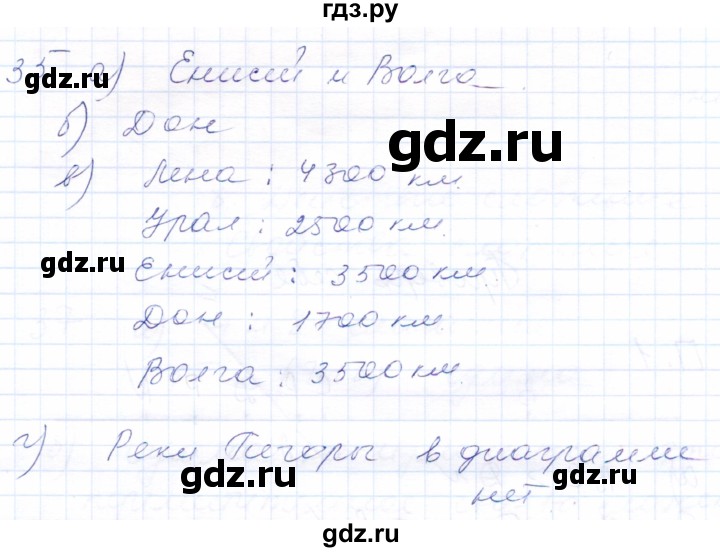 гдз.ру
35 а) Енисий и Волга
б) Дон
gdz.ru
в) Лена : 4300 км.
Урал : 2500 км.
gdz.ru
Енисий : 3500 км.
Дон : 1700 км.
gdz.ru
Волга : 3500 км.
г) Реки Пичоры в диаграмме
gdz.ru
gdz.ru
нет.
gdz.ru